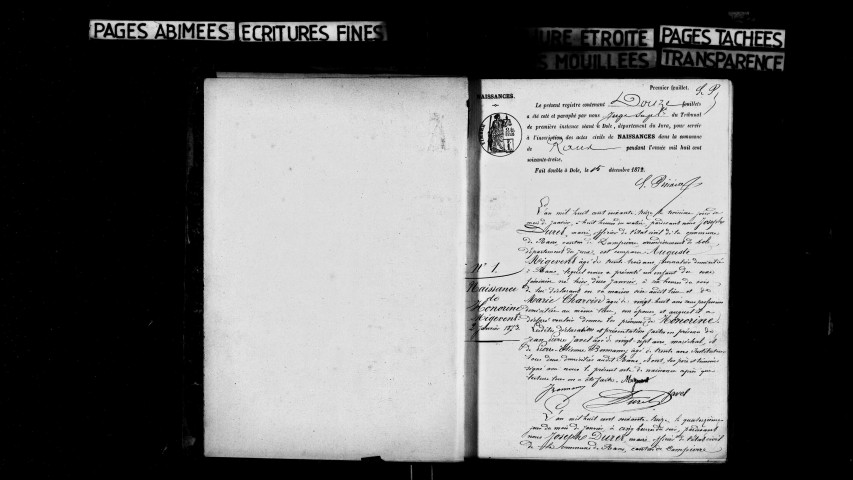 PAGES ABIMEES ECRITURES FINES
URE ETROITE PAGES TACHEES
MOUILLEES TRANSPARENCE
Premier feuillet.
NAISSANCES.
Le présent registre contenant Douze feuillets
a été coté et paraphé par nous Juge Supt du Tribunal
de première instance séant à Dole, département du Jura, pour servir
à l'inscription des actes civils de NAISSANCES dans la commune
de Rans pendant l'année mil huit cent
soixante-treize.
Fait double à Dole, le 15 décembre 1872.
L'an mil huit cent soixante treize le troisième jour du
mois de janvier, à huit heures du matin, pardevant nous Joseph
Duret, maire, officier de l'état civil de la commune
de Rans, canton de Dampierre, arrondissement de Dole,
département du Jura, est comparu Auguste
Migevent âgé de trente trois ans, domicilié
à Rans, lequel nous a présenté un enfant du sexe
féminin né hier deux janvier, à heures du soir
de lui déclarant en sa maison et de
Marie Charvin âgée de vingt huit ans profession
domiciliée au même lieu, son épouse, et auquel il a
déclaré vouloir donner les prénoms de Honorine.
Lesdites déclaration et présentation faites en présence de
Jean Javel âgé de vingt sept ans, maréchal, et
de Pierre Etienne âgé de trente ans Instituteur
tous deux domiciliés audit Rans, et ont, les père et témoins
signé avec nous le présent acte de naissance après que
lecture leur en a été faite.
Duret Javel
N° 1.
Naissance
de
Honorine
Migevent
2 Janvier 1873
L'an mil huit cent soixante treize, le quatorzième
jour du mois de janvier, à cinq heures du soir, pardevant
nous Joseph Duret, maire, officier de l'état civil
de la commune de Rans, canton de Dampierre